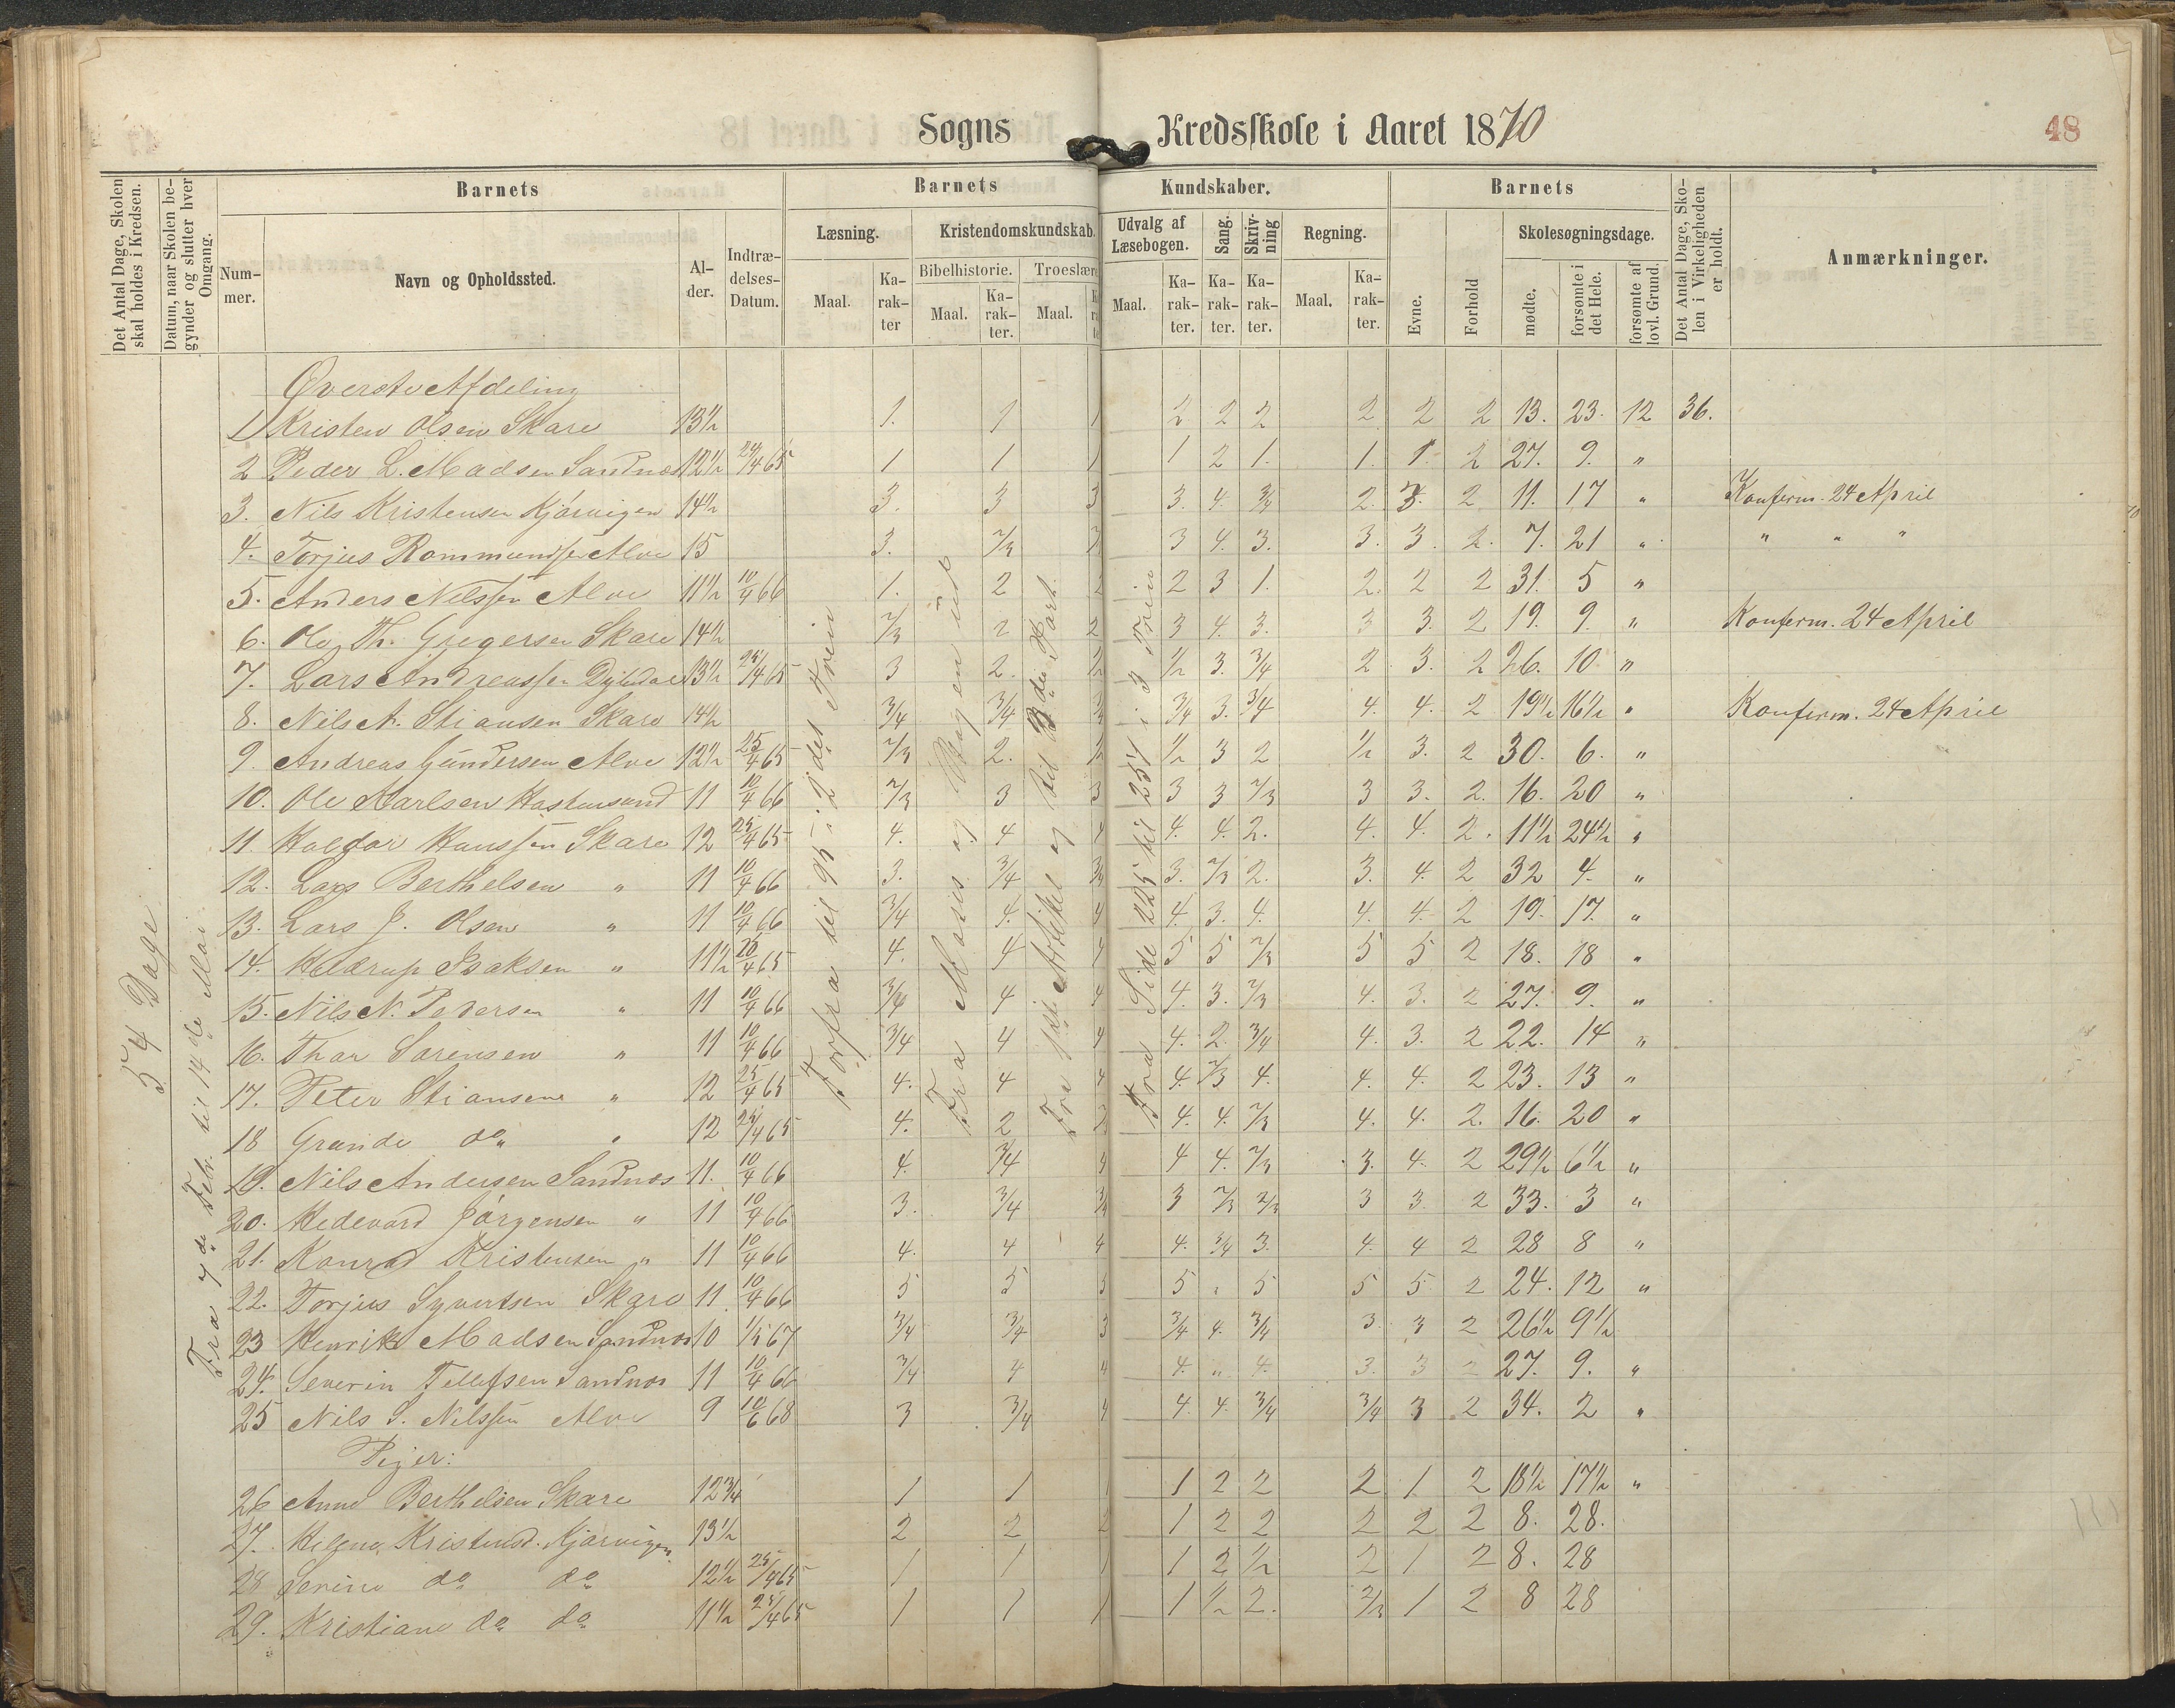 Sogns Kredsskole i Aaret 1870 48
Det Antal Dage, Skolen skal holdes i Kredsen.
Datum, naar Skolen begynder og slutter hver Omgang.
Barnets Barnets Kundskaber. Barnets
Nummer. Navn og Opholdssted. Alder. Indtrædelses-Datum.
Læsning. Kristendomskundskab. Udvalg af Læsebogen. Sang. Skrivning Regning. Evne. Forhold Skolesøgningsdage.
Bibelhistorie. Troeslære
Maal. Karakter Maal. Karakter. Maal. Maal. Karakter. Karakter. Karakter. Maal. Karakter. mødte. forsømte i det Hele. forsømte af lovl. Grund.
Det Antal Dage, Skolen i Virkeligheden er holdt.
Anmærkninger.
54 Dage
Fra 7de Febr. til 14de Mai
Forfra til 95 i 2det Trin
Fra Moses og Bogen ud
Fra 1ste Artikel og til B de Part
Fra Side 225 til 257 i 3 Trin
Øverste Afdeling
1 Kristen Olsen Skare 13½ 1. 1 1 2 2 2 2 2 2 13. 23. 12 36.
2 Peder L. Madsen Sandnæs 12½ 25/4 65 1 1 1 1 2 1. 1. 1. 2 27. 9. "
3. Nils Kristensen Kjørvigen 14½ 3. 3 3 3. 4. 3/4 2. 3. 2 11. 17 " Konferm. 24 April
4. Torjus Rommundsen Alve 15 3. 2/3 2 3 4. 3. 3. 3. 2. 7. 21 " " " "
5. Anders Nilssen Alve 11½ 10/4 66 1. 2 2 2 3 1. 2. 2 2 31. 5 "
6. Ole Th. Gregersen Skare 14½ 2/3 2 2 3 4. 3. 3 3. 2 19. 9. " Konferm. 24 April
7. Lars Andreassen Dybdal 13½ 25/4 65 3 2. ½ ½ 3. 3/4 2 3. 2 26. 10 "
8. Nils A. Stiansen Skare 14½ 3/4 3/4 3/4 3/4 3. 3/4 4. 4. 2 19½ 16½ " Konferm. 24 April
9. Andreas Gundersen Alve 12½ 25/4 65 2/3 2. ½ ½ 3 2 ½ 3. 2 30. 6. "
10. Ole Karlsen Hastensund 11 10/4 66 2/3 3 3 3 3 2/3 3 3. 2. 16. 20 "
11. Haldor Hanssen Skare 12 25/4 65 4. 4 4 4. 4. 2. 4. 4. 2. 11½ 24½ "
12. Lars Berthelsen " 11 10/4 66 3. 3/4 3/4 3. 2/3 2. 3. 4. 2 32 4. "
13. Lars J. Olsen " 11 10/4 66 3/4 4. 4 4. 3. 4. 4. 4. 2 19. 17. "
14. Keldrup Isaksen " 11½ 25/4 65 4. 4 4 5 5 2/3 5 5 2 18. 18 "
15. Nils N. Pedersen " 11 10/4 66 3/4 4 4 4. 3. 2/3 4. 3. 2 27. 9. "
16. Thor Sørensen " 11 10/4 66 3/4 4 4 4. 2. 3/4 4. 3. 2 22. 14 "
17. Peter Stiansen " 12 25/4 65 4. 4 4 4. 2/3 4. 4. 4. 2 23. 13 "
18 Grunde do " 12 25/4 65 4. 2 2 4. 4. 2/3 4. 4. 2. 16. 20 "
19. Nils Andersen Sandnæs 11. 10/4 66 4. 3/4 4 4 4. 2/3 3. 4. 2 29½ 6½ "
20. Hedevard Jörgensen " 11 10/4 66 3. 3/4 3/4 3 2/3 2/3 3 3. 2 33. 3 "
21. Konrad Kristensen " 11 10/4 66 4. 4 4 4. 3/4 3. 4. 4 2 28 8 "
22. Torjus Syvertsen Skare 11 10/4 66 5 5 5 5 " 5 5 5 2 24. 12 "
23 Henrik Madsen Sandnæs 10 1/5 67 3/4 3/4 3 3/4 4. 3/4 3. 3 2 26½ 9½
24. Severin Tellefsen Sandnæs 11 10/4 66 3/4 4 4 4. " 4. 3. 3 2 27. 9. "
25 Nils S. Nilssen Alve 9 10/6 68 3 3/4 4 4. 4. 3/4 3/4 3 2 34. 2 "
Piger:
26 Anne Berthelsen Skare 12 3/4 1 1 1 1 2 2 2 1 2 18½ 17½ "
27. Helene Kristensd. Kjørvigen 13½ 2 2 2 1 2 2 2 2 2 8. 28.
28 Serine do do 12½ 25/4 65 1 1 1 1 2 ½ 2 1 2 8. 28
29. Kristiane do do 11½ 25/4 65 1 1 1 1 ½ 2. 2/3 1 2 8 28